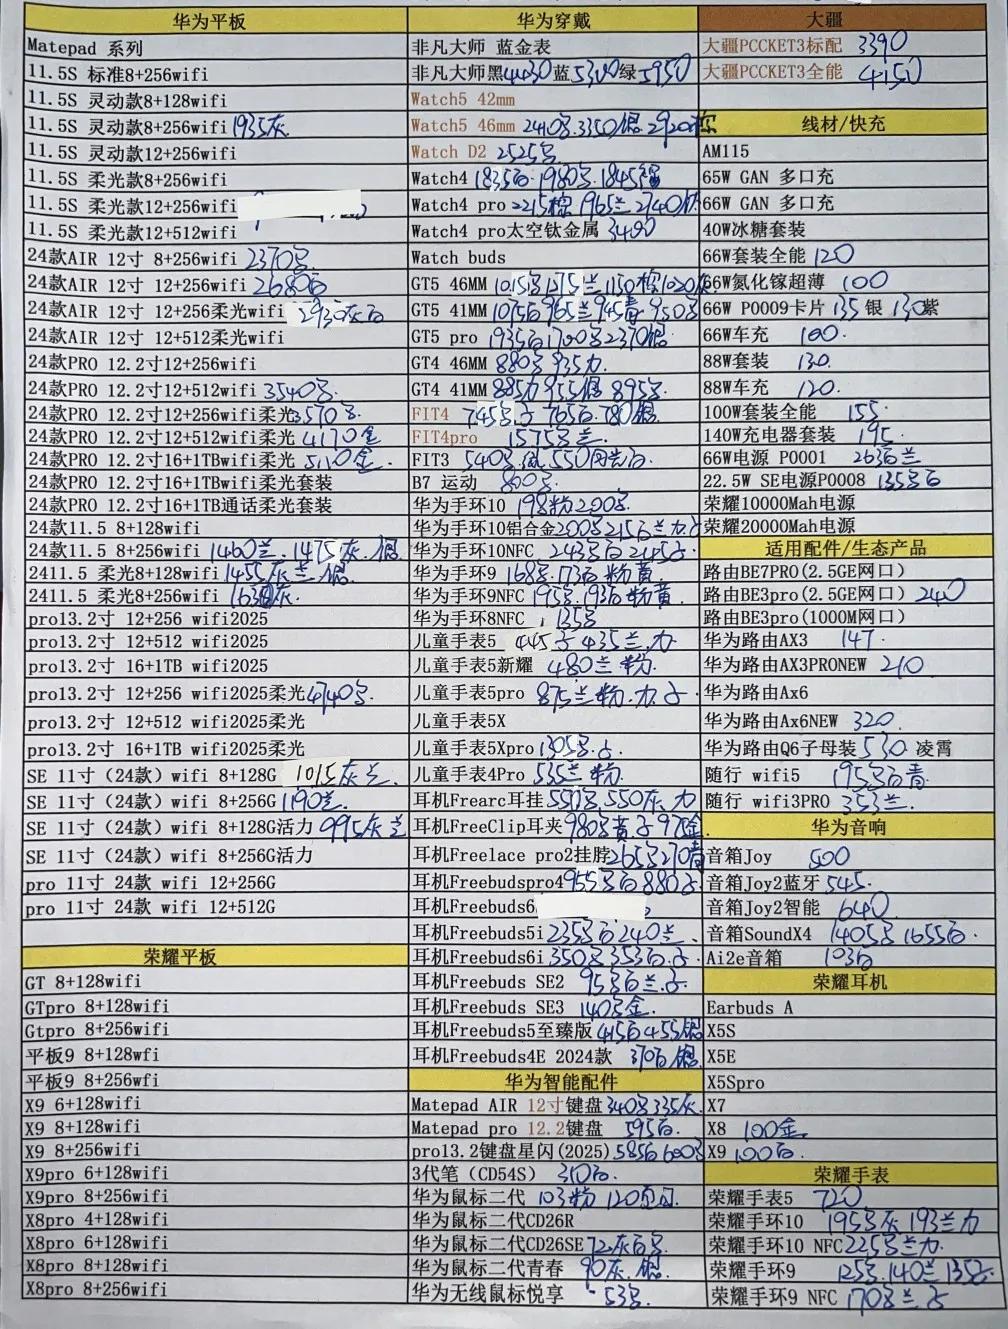 华为平板
Matepad 系列
11.5S 标准8+256wifi
11.5S 灵动款8+128wifi
11.5S 灵动款8+256wifi 1935灰
11.5S 灵动款12+256wifi
11.5S 柔光款8+256wifi
11.5S 柔光款12+256wifi
11.5S 柔光款12+512wifi
24款AIR 12寸 8+256wifi 2370
24款AIR 12寸 12+256wifi 2680白
24款AIR 12寸 12+256柔光wifi 2930灰白
24款AIR 12寸 12+512柔光wifi
24款PRO 12.2寸12+256wifi
24款PRO 12.2寸12+512wifi 3540
24款PRO 12.2寸12+256wifi柔光 3570
24款PRO 12.2寸12+512wifi柔光 4170金
24款PRO 12.2寸16+1TBwifi柔光 5110金
24款PRO 12.2寸16+1TBwifi柔光套装
24款PRO 12.2寸16+1TB通话柔光套装
24款11.5 8+128wifi
24款11.5 8+256wifi 1460兰.1475灰.银
2411.5 柔光8+128wifi 1455灰兰.银
2411.5 柔光8+256wifi 灰.
pro13.2寸 12+256 wifi2025
pro13.2寸 12+512 wifi2025
pro13.2寸 16+1TB wifi2025
pro13.2寸 12+256 wifi2025柔光 4740
pro13.2寸 12+512 wifi2025柔光
pro13.2寸 16+1TB wifi2025柔光
SE 11寸（24款）wifi 8+128G 1015灰兰.
SE 11寸（24款）wifi 8+256G 1190兰.
SE 11寸（24款）wifi 8+128G活力 995灰兰
SE 11寸（24款）wifi 8+256G活力
pro 11寸 24款 wifi 12+256G
pro 11寸 24款 wifi 12+512G
荣耀平板
GT 8+128wifi
GTpro 8+128wifi
Gtpro 8+256wifi
平板9 8+128wfi
平板9 8+256wfi
X9 6+128wifi
X9 8+128wifi
X9 8+256wifi
X9pro 6+128wifi
X9pro 8+256wifi
X8pro 4+128wifi
X8pro 6+128wifi
X8pro 8+128wifi
X8pro 8+256wifi
华为穿戴
非凡大师 蓝金表
非凡大师黑4430蓝5300绿5950
Watch5 42mm
Watch5 46mm 2410 3350银.2920
Watch D2 2525
Watch4 1835 1980 1845
Watch4 pro 2215棕 1965兰 2740
Watch4 pro太空钛金属 3400
Watch buds
GT5 46MM 1015 1175兰 1150棕1020灰
GT5 41MM 1075白965兰945青 950
GT5 pro 1935白1700 2370银
GT4 46MM 880 935力
GT4 41MM 885力 955银 895
FIT4 745 765白.780银
FIT4pro 1575 兰.
FIT3 540 550
B7 运动 800
华为手环10 198粉200
华为手环10铝合金200 215白兰力
华为手环10NFC 243 白 245
华为手环9 168 173白 粉黄
华为手环9NFC 195 193白粉黄
华为手环8NFC 135
儿童手表5 445 435兰.力
儿童手表5新耀 480兰粉.
儿童手表5pro 875兰粉.力.
儿童手表5X
儿童手表5Xpro 1305
儿童手表4Pro 535兰粉.
耳机Frearc耳挂 550 550灰 力
耳机FreeClip耳夹 980 黄 975金
耳机Freelace pro2挂脖 265 270青
耳机Freebudspro4 955 白 880
耳机Freebuds6
耳机Freebuds5i 235 白240兰
耳机Freebuds6i 350 353白.
耳机Freebuds SE2 95 白兰.
耳机Freebuds SE3 140 金.
耳机Freebuds5至臻版 415白 455银
耳机Freebuds4E 2024款 370白银
华为智能配件
Matepad AIR 12寸键盘 340 335灰.
Matepad pro 12.2键盘 595白.
pro13.2键盘星闪(2025) 585白 600
3代笔（CD54S） 310白.
华为鼠标二代 103粉 120
华为鼠标二代CD26R
华为鼠标二代CD26SE 72灰白
华为鼠标二代青春 90灰.银
华为无线鼠标悦享 53
大疆
大疆PCCKET3标配 3390
大疆PCCKET3全能 4150
线材/快充
AM115
65W GAN 多口充
66W GAN 多口充
40W冰糖套装
66W套装全能 120
66W氮化镓超薄 100
66W P0009卡片 135 银 130紫
66W车充 100.
88W套装 130.
88W车充 120.
100W套装全能 155.
140W充电器套装 195.
66W电源 P0001 263白兰
22.5W SE电源P0008 135 白
荣耀10000Mah电源
荣耀20000Mah电源
适用配件/生态产品
路由BE7PRO(2.5GE网口)
路由BE3pro(2.5GE网口) 240
路由BE3pro(1000M网口)
华为路由AX3 147.
华为路由AX3PRONEW 210
华为路由Ax6
华为路由Ax6NEW 320.
华为路由Q6子母装 530. 凌霄
随行 wifi5 195 白青.
随行 wifi3PRO 353兰.
华为音响
音箱Joy 500
音箱Joy2蓝牙 545.
音箱Joy2智能 640.
音箱SoundX4 1405 1655白.
Ai2e音箱 103白
荣耀耳机
Earbuds A
X5S
X5E
X5Spro
X7
X8 100金.
X9 100白.
荣耀手表
荣耀手表5 720
荣耀手环10 195 灰 193兰力
荣耀手环10 NFC 225 兰力.
荣耀手环9 125 .140兰 135
荣耀手环9 NFC 170 兰